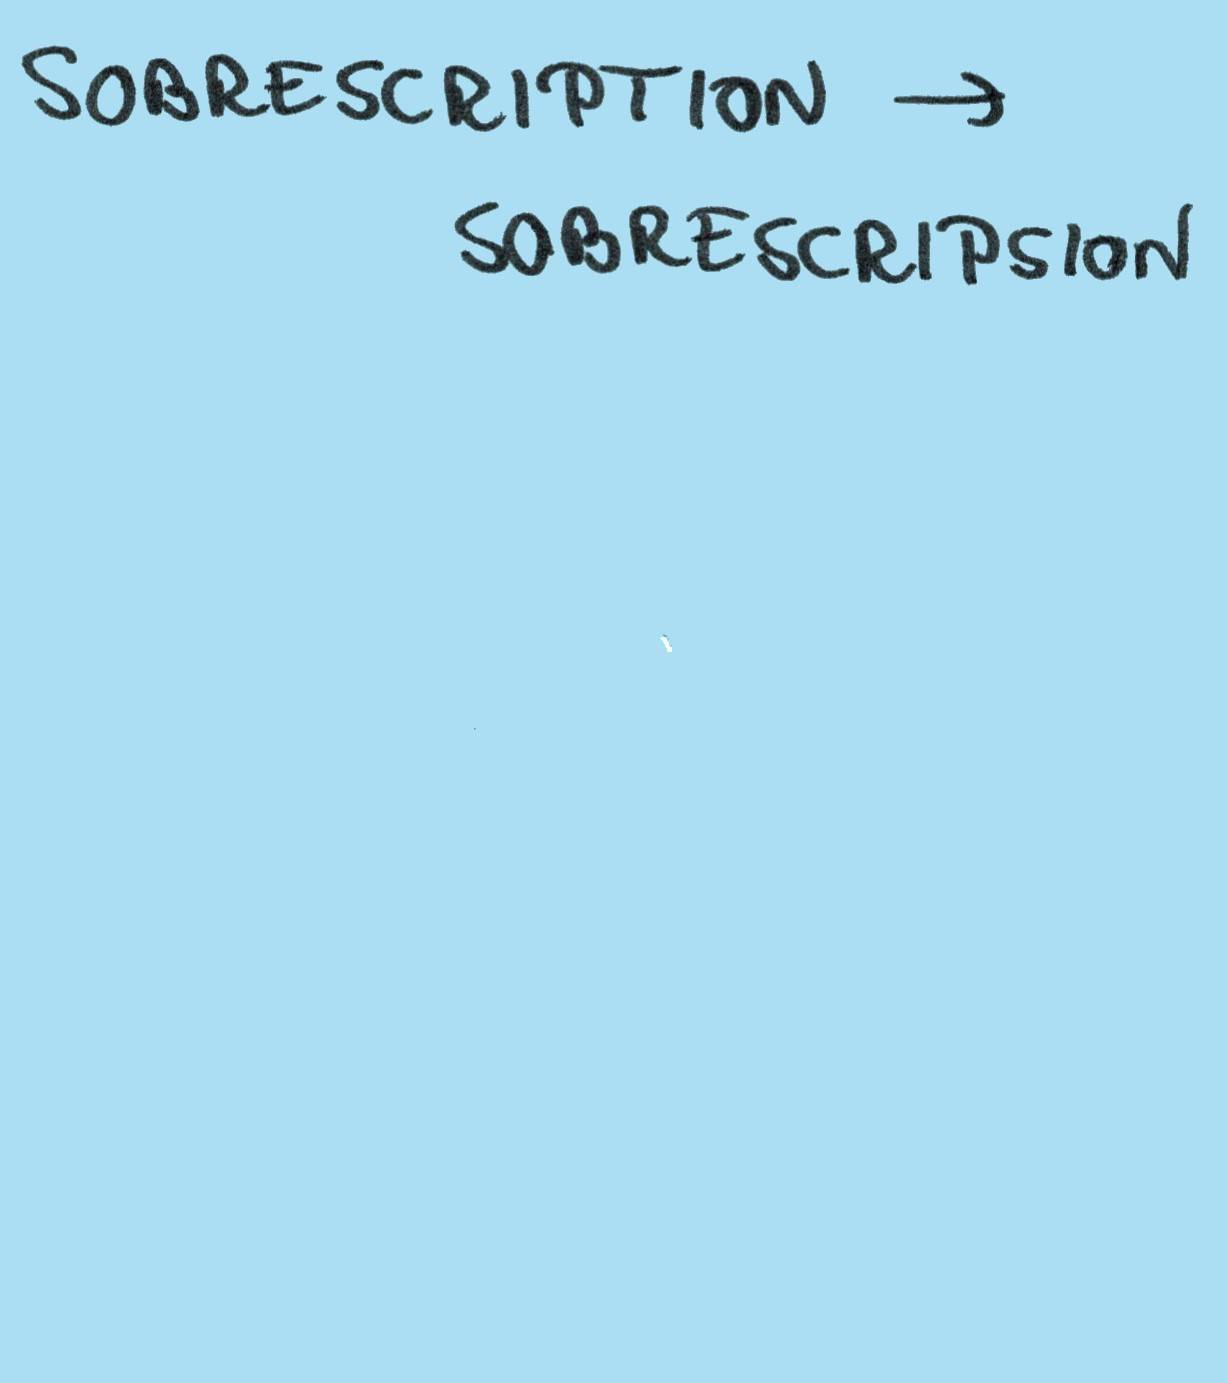 SOBRESCRIPTION →
SOBRESCRIPSION